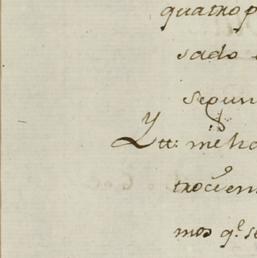 quatro p
sado
segun
Ytt: me ha
trocien
mos q.e se